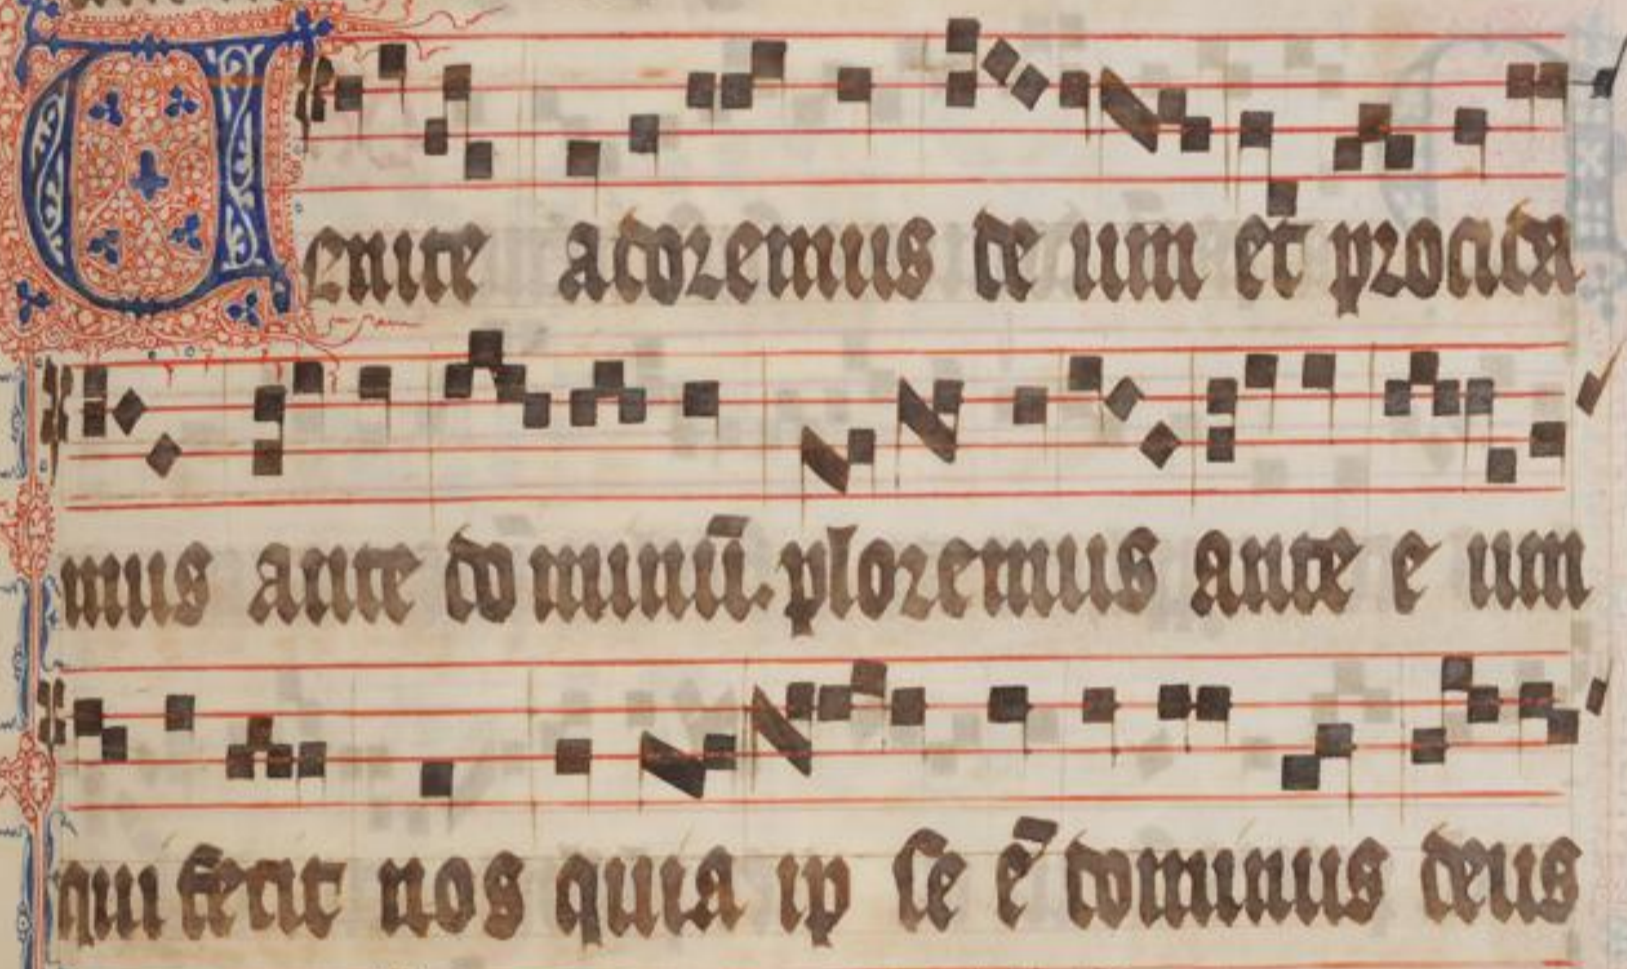 Uenite adoremus de um et procida
mus ante do minū. ploremus ante e um
qui fecit nos quia ip se ē dominus deus